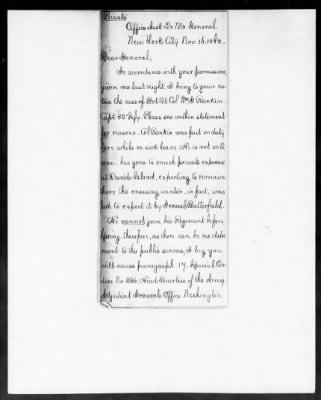 Private
Office Asst. Qr. Mr. General
New York City Nov 14, 1868.
Dear General;
In accordance with your permission
given me last night, I bring to your no-
tice the case of Bvt Lt Col Wm G. Rankin
Capt 33" Infy. Please see within statement
for reasons. Col Rankin was put on duty
here while on sick leave. He is not well
now, has gone to much private expense
at Davids Island, expecting to remain
there the ensuing winter, in fact, was
led to expect it by General Butterfield.
He cannot join his Regiment before
Spring, therefore, as there can be no detri-
ment to the public service, I beg you
will cause paragraph 17, Special Or-
ders No 266, Head Quarters of the Army,
Adjutant Generals Office, Washington